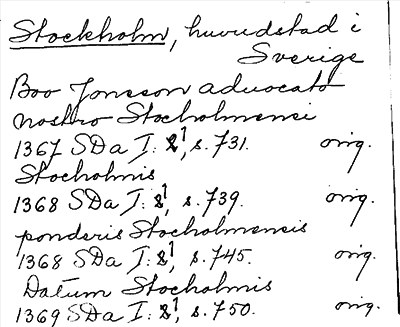 Stockholm, huvudstad i
Sverige
Boo Jonsson aduocato
nostro Stocholmensi
1367 SDa I: 8¹, s. 731. orig.
Stocholmis
1368 SDa I: 8¹, s. 739. orig.
ponderis Stocholmensis
1368 SDa I: 8¹, s. 745. orig.
Datum Stocholmis
1369 SDa I: 8¹, s. 750. orig.